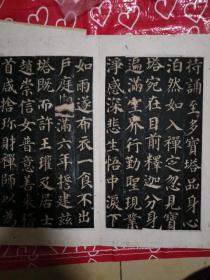 持誦至多寶塔品身心
泊然如入禪定忽見寶
塔宛在目前釋迦分身
遍滿界行勤聖現業
淨感深悲生悟中淚下
如雨遂布衣一食不出
戶庭滿六年誓建茲
塔既而許王瓘及居士
趙崇信女普意善来稽
首咸捨珍財禪師以為